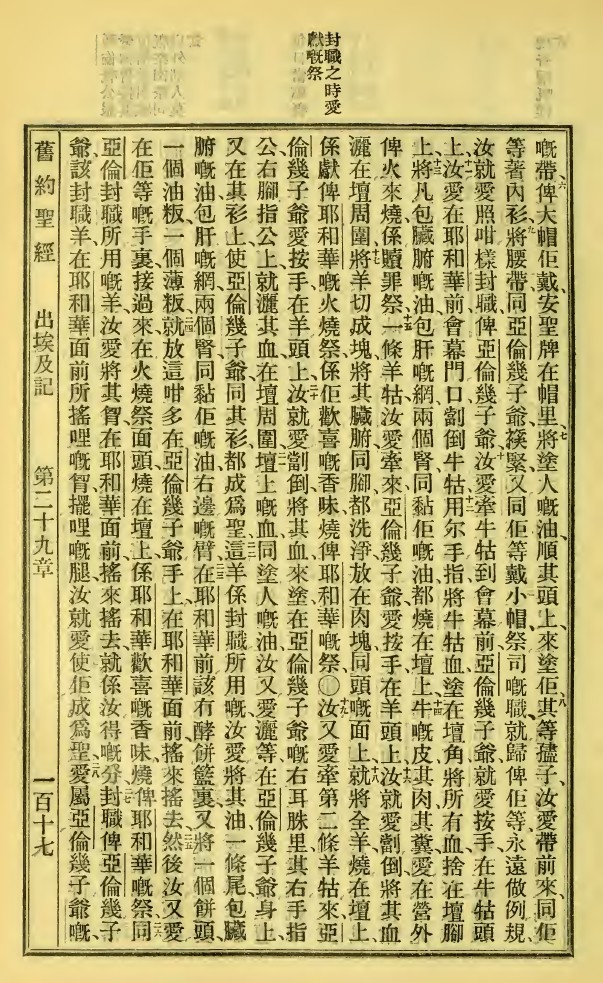 封職之時愛
獻嘅祭
嘅帶俾大帽佢戴安聖牌在帽里、將塗人嘅油順其頭上、來塗佢、其等孻子汝愛帶前來、同佢
等著內衫、將腰帶同亞倫幾子爺㨆緊、又同佢等戴小帽、祭司嘅職就歸俾佢等、永遠做例規、
汝就愛照咁樣封職俾亞倫幾子爺、汝愛牽牛牯到會幕前、亞倫幾子爺就愛按手在牛牯頭
上、汝愛在耶和華前會幕門口劏倒牛牯、用尔手指將牛牯血塗在壇角、將所有血捨在壇腳
上、將凡包臟腑嘅油、包肝嘅網、兩個腎同黏佢嘅油、都燒在壇上、牛嘅皮其肉其糞、愛在營外
俾火來燒、係贖罪祭、一條羊牯汝愛牽來、亞倫幾子爺愛按手在羊頭上、汝就愛劏倒、將其血
灑在壇周圍、將羊切成塊、將其臟腑同腳都洗淨、放在肉塊同頭嘅面上、就將全羊燒在壇上、
係獻俾耶和華嘅火燒祭、係佢歡喜嘅香味、燒俾耶和華嘅祭、〇汝又愛牽第二條羊牯來、亞
倫幾子爺愛按手在羊頭上、汝就愛劏倒、將其血來塗在亞倫幾子爺嘅右耳珠里、其右手指
公、右腳指公上、就灑其血在壇周圍、壇上嘅血、同塗人嘅油、汝又愛灑等在亞倫幾子爺身上、
又在其衫上、使亞倫幾子爺同其衫、都成爲聖、這羊係封職所用嘅、汝愛將其油、一條尾、包臟
腑嘅油、包肝嘅網、兩個腎同黏佢嘅油、右邊嘅臂、在耶和華前該有酵餅籃裏、又將一個餅頭、
一個油粄、一個薄粄、就放這咁多在亞倫幾子爺手上、在耶和華面前搖來搖去、然後汝又愛
在佢等嘅手裏接過來、在火燒祭面頭燒在壇上、係耶和華歡喜嘅香味、燒俾耶和華嘅祭、同
亞倫封職所用嘅羊、汝愛將其胷在耶和華面前搖來搖去、就係汝得嘅分、封職俾亞倫幾子
爺、該封職羊、在耶和華面前、所搖哩嘅胷、擺哩嘅腿、汝就愛使佢成爲聖、愛屬亞倫幾子爺嘅、
舊約聖經 出埃及記 第二十九章 一百十七